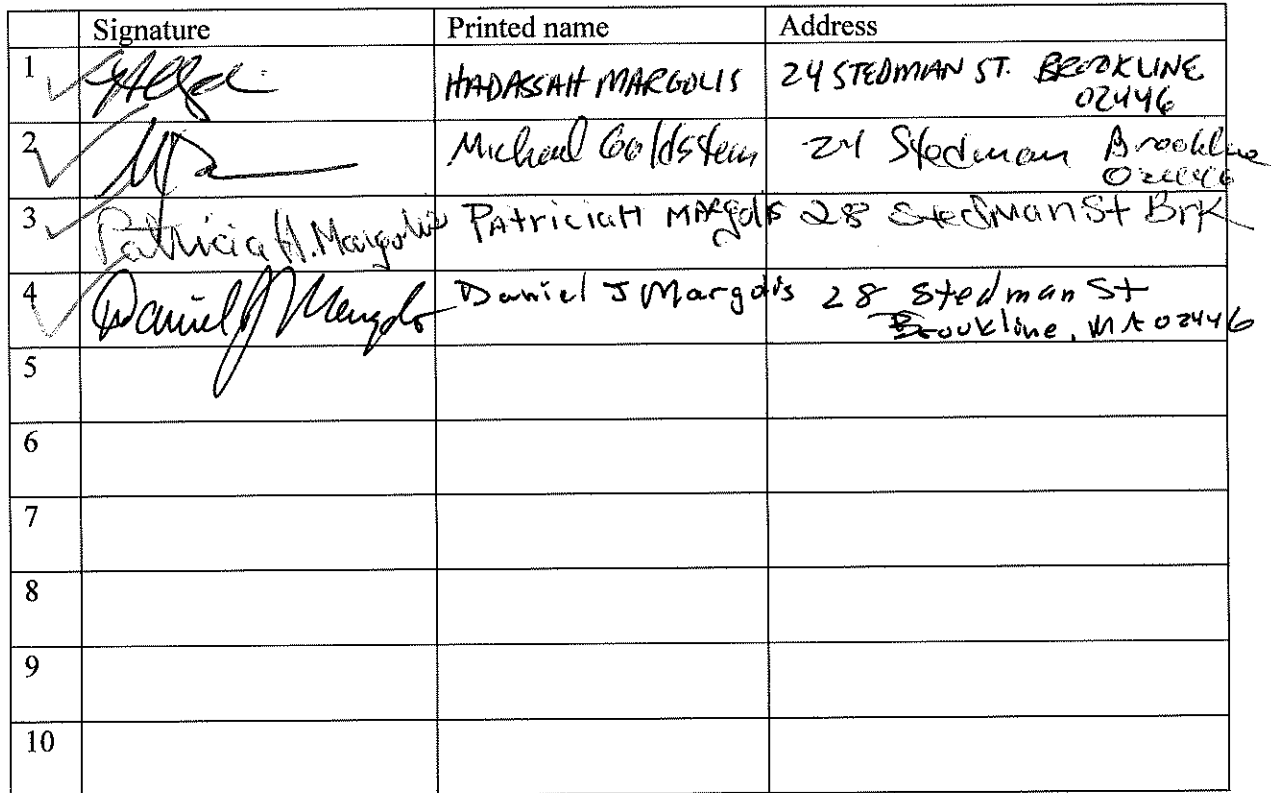 Signature Printed name Address
1 HADASSAH MARGOLIS 24 STEDMAN ST. BROOKLINE
02446
2 Michael Goldstein 24 Stedman Brookline
02446
3 Patricia H. Margolis PAtriciaH MARgolis 28 Stedman St Brk
4 Daniel J Margolis Daniel J Margolis 28 Stedman St
Brookline, MA 02446
5
6
7
8
9
10